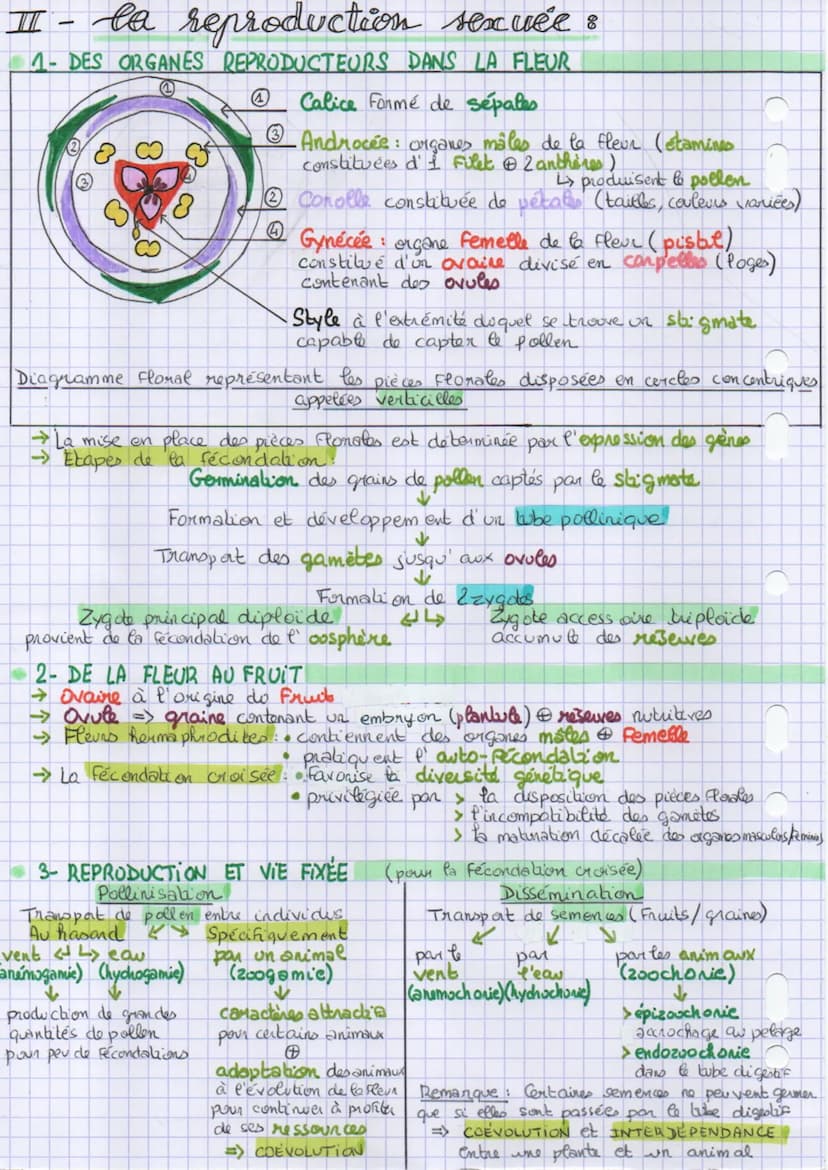 II - La reproduction sexuée :
1- DES ORGANES REPRODUCTEURS DANS LA FLEUR
① Calice Formé de sépales
③ Androcée : organes mâles de la fleur (étamines
constituées d'1 Filet ⊕ 2 anthères)
↳ produisent le pollen
② Corolle constituée de pétales (tailles, couleurs variées)
④ Gynécée : organe Femelle de la fleur (pistil)
constitué d'un ovaire divisé en carpelles (loges)
contenant des ovules
Style à l'extrémité duquel se trouve un stigmate
capable de capter le pollen
① ② ③ ④
Diagramme Floral représentant les pièces Florales disposées en cercles concentriques
appelées verticilles
→ La mise en place des pièces Florales est déterminée par l'expression des gènes
→ Etapes de la fécondation :
Germination des grains de pollen captés par le stigmate
↓
Formation et développement d'un tube pollinique
↓
Transport des gamètes jusqu'aux ovules
↓
Formation de 2 zygotes
Zygote principal diploïde ↲ ↳ Zygote accessoire triploïde
provient de la fécondation de l'oosphère accumule des réserves
2- DE LA FLEUR AU FRUIT
→ Ovaire à l'origine du Fruit
→ Ovule => graine contenant un embryon (plantule) ⊕ réserves nutritives
→ Fleurs hermaphrodites : • contiennent des organes mâles ⊕ Femelle
• pratiquent l'auto-Fécondation
→ La fécondation croisée : • Favorise la diversité génétique
• privilégiée par > la disposition des pièces florales
> l'incompatibilité des gamètes
> la maturation décalée des organes masculins/féminins
3- REPRODUCTION ET VIE FIXÉE (pour la Fécondation croisée)
Pollinisation
Transport de pollen entre individus
Au hasard ↙ ↘ Spécifiquement
vent ↲ ↳ eau par un animal
(anémogamie) (hydrogamie) (zoogamie)
↓ ↓ ↓
production de grandes
quantités de pollen
pour peu de Fécondations
caractères attractifs
pour certains animaux
⊕
adaptation des animaux
à l'évolution de la fleur
pour continuer à profiter
de ses ressources
=> COÉVOLUTION
Dissémination
Transport de semences (Fruits/graines)
↙ ↓ ↘
par le vent (anémochorie)
par l'eau (hydrochorie)
par les animaux (zoochorie)
↓
> épizoochorie
accrochage au pelage
> endozoochorie
dans le tube digestif
Remarque : Certaines semences ne peuvent germer
que si elles sont passées par le tube digestif
=> COÉVOLUTION et INTERDÉPENDANCE
entre une plante et un animal